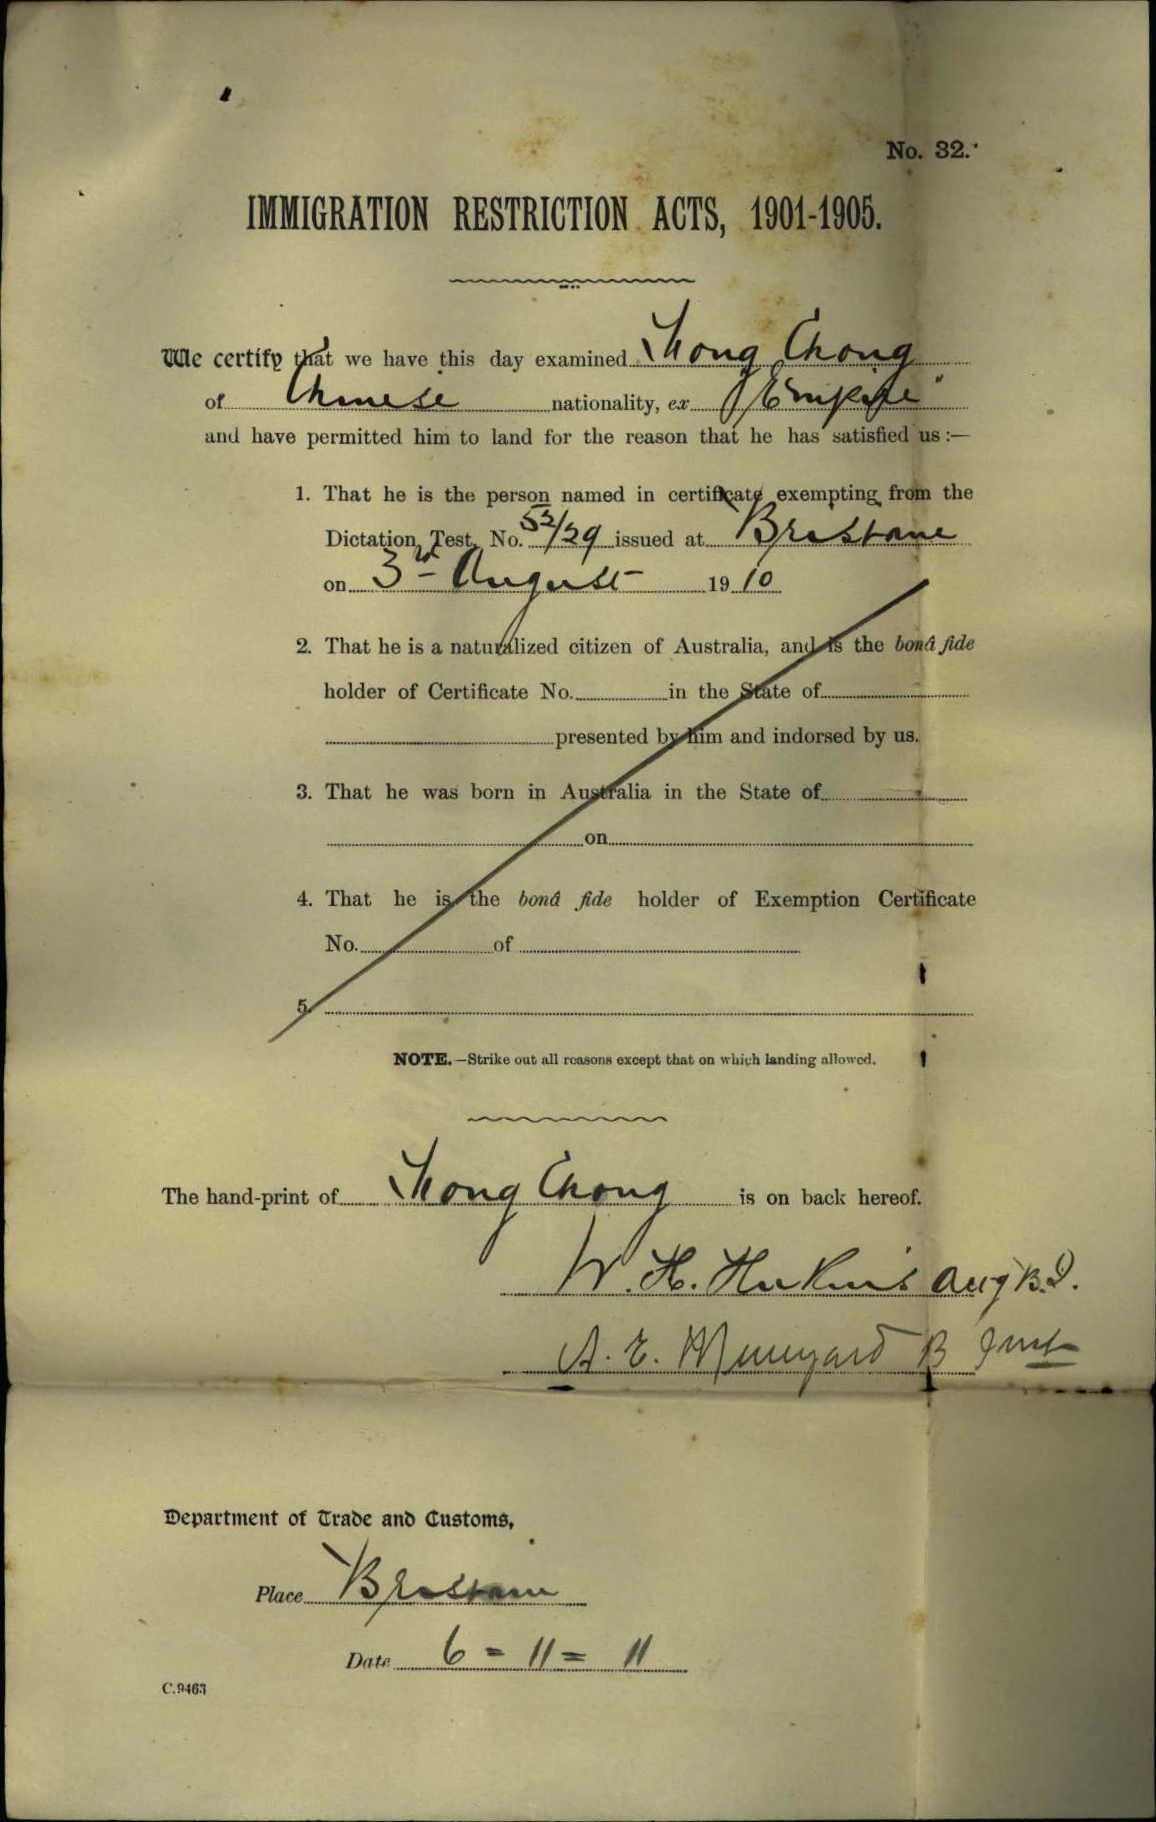 No. 32.
IMMIGRATION RESTRICTION ACTS, 1901-1905.
We certify that we have this day examined Kong Chong
of Chinese nationality, ex "Empire"
and have permitted him to land for the reason that he has satisfied us :—
1. That he is the person named in certificate exempting from the
Dictation Test, No. 53/29 issued at Brisbane
on 3rd August 1910
2. That he is a naturalized citizen of Australia, and is the bonâ fide
holder of Certificate No. in the State of
presented by him and indorsed by us.
3. That he was born in Australia in the State of
on
4. That he is the bonâ fide holder of Exemption Certificate
No. of
5.
NOTE.—Strike out all reasons except that on which landing allowed.
The hand-print of Kong Chong is on back hereof.
W. H.
A. E.
Department of Trade and Customs,
Place Brisbane
Date 6 = 11 = 11
C.9463